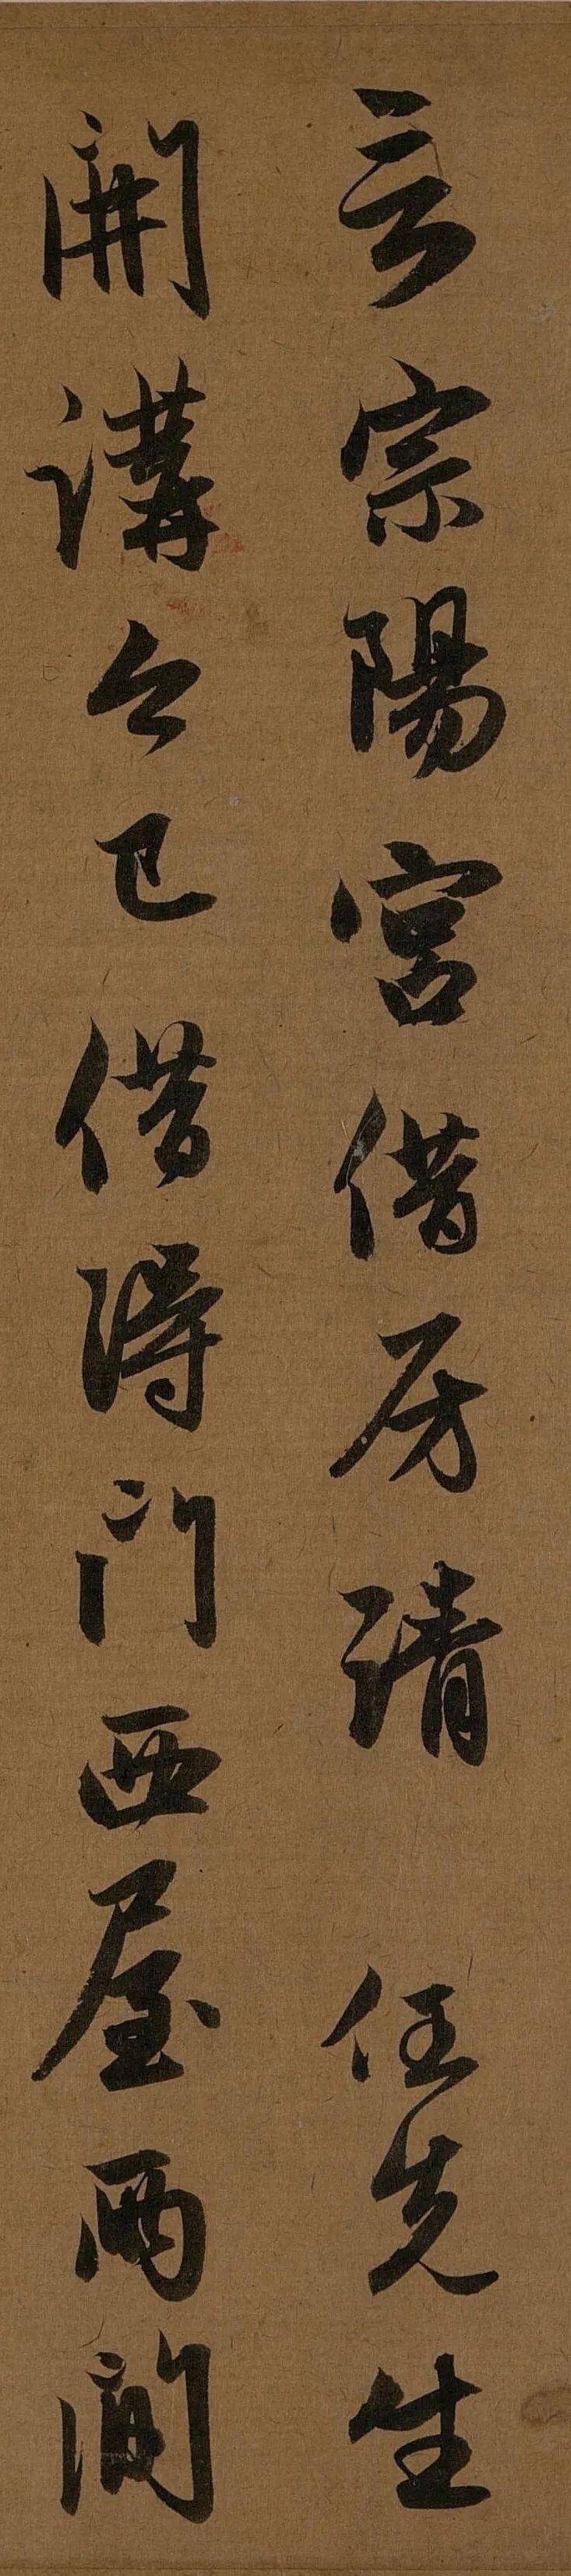 言宗陽宮借房請 任先生
開講今已借得門西屋兩間